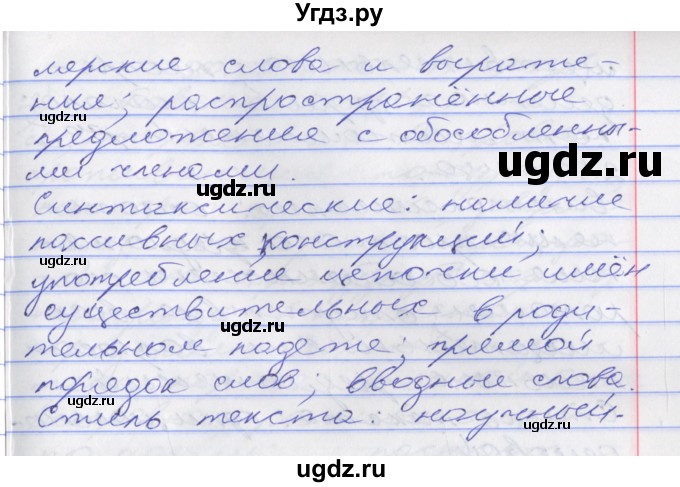 Угдз.ру
лярские слова и выраже-
ния; распространённые
предложения с обособленны-
ми членами.
ugdz.ru
ugdz.ru
Синтаксические: наличие
ugdz.ru
пассивных конструкций;
употребление цепочки имён
существительных в роди-
ugdz.ru
тельном падеже; прямой
ugdz.ru
порядок слов; вводные слова.
Стиль текста: научный.
ugdz.ru
ugdz.ru